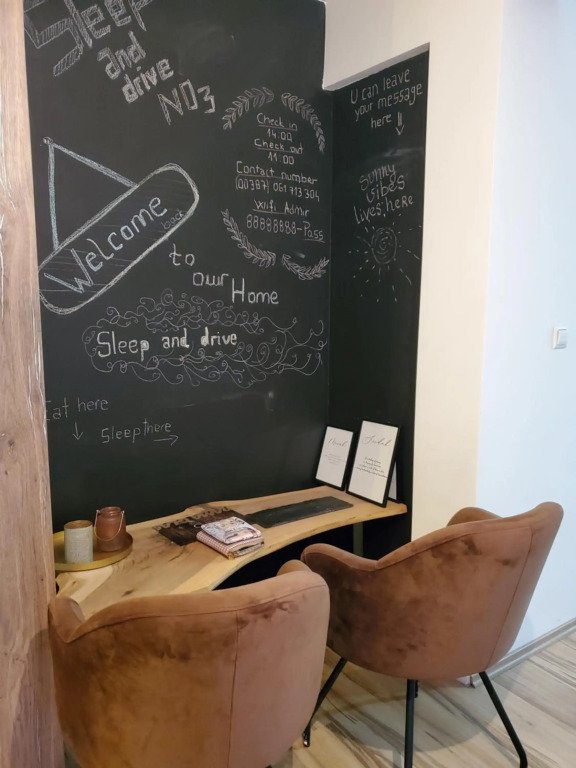 Sleep
and
drive
NO3
Check in
14.00
Check out
11.00
Contact number
(00387) 061 713 304
Wifi Admir
88888888-Pass
U can leave
your message
here
Sunny
Vibes
lives here
Welcome
back
to
our
Home
Sleep and drive
Eat here
Sleep here